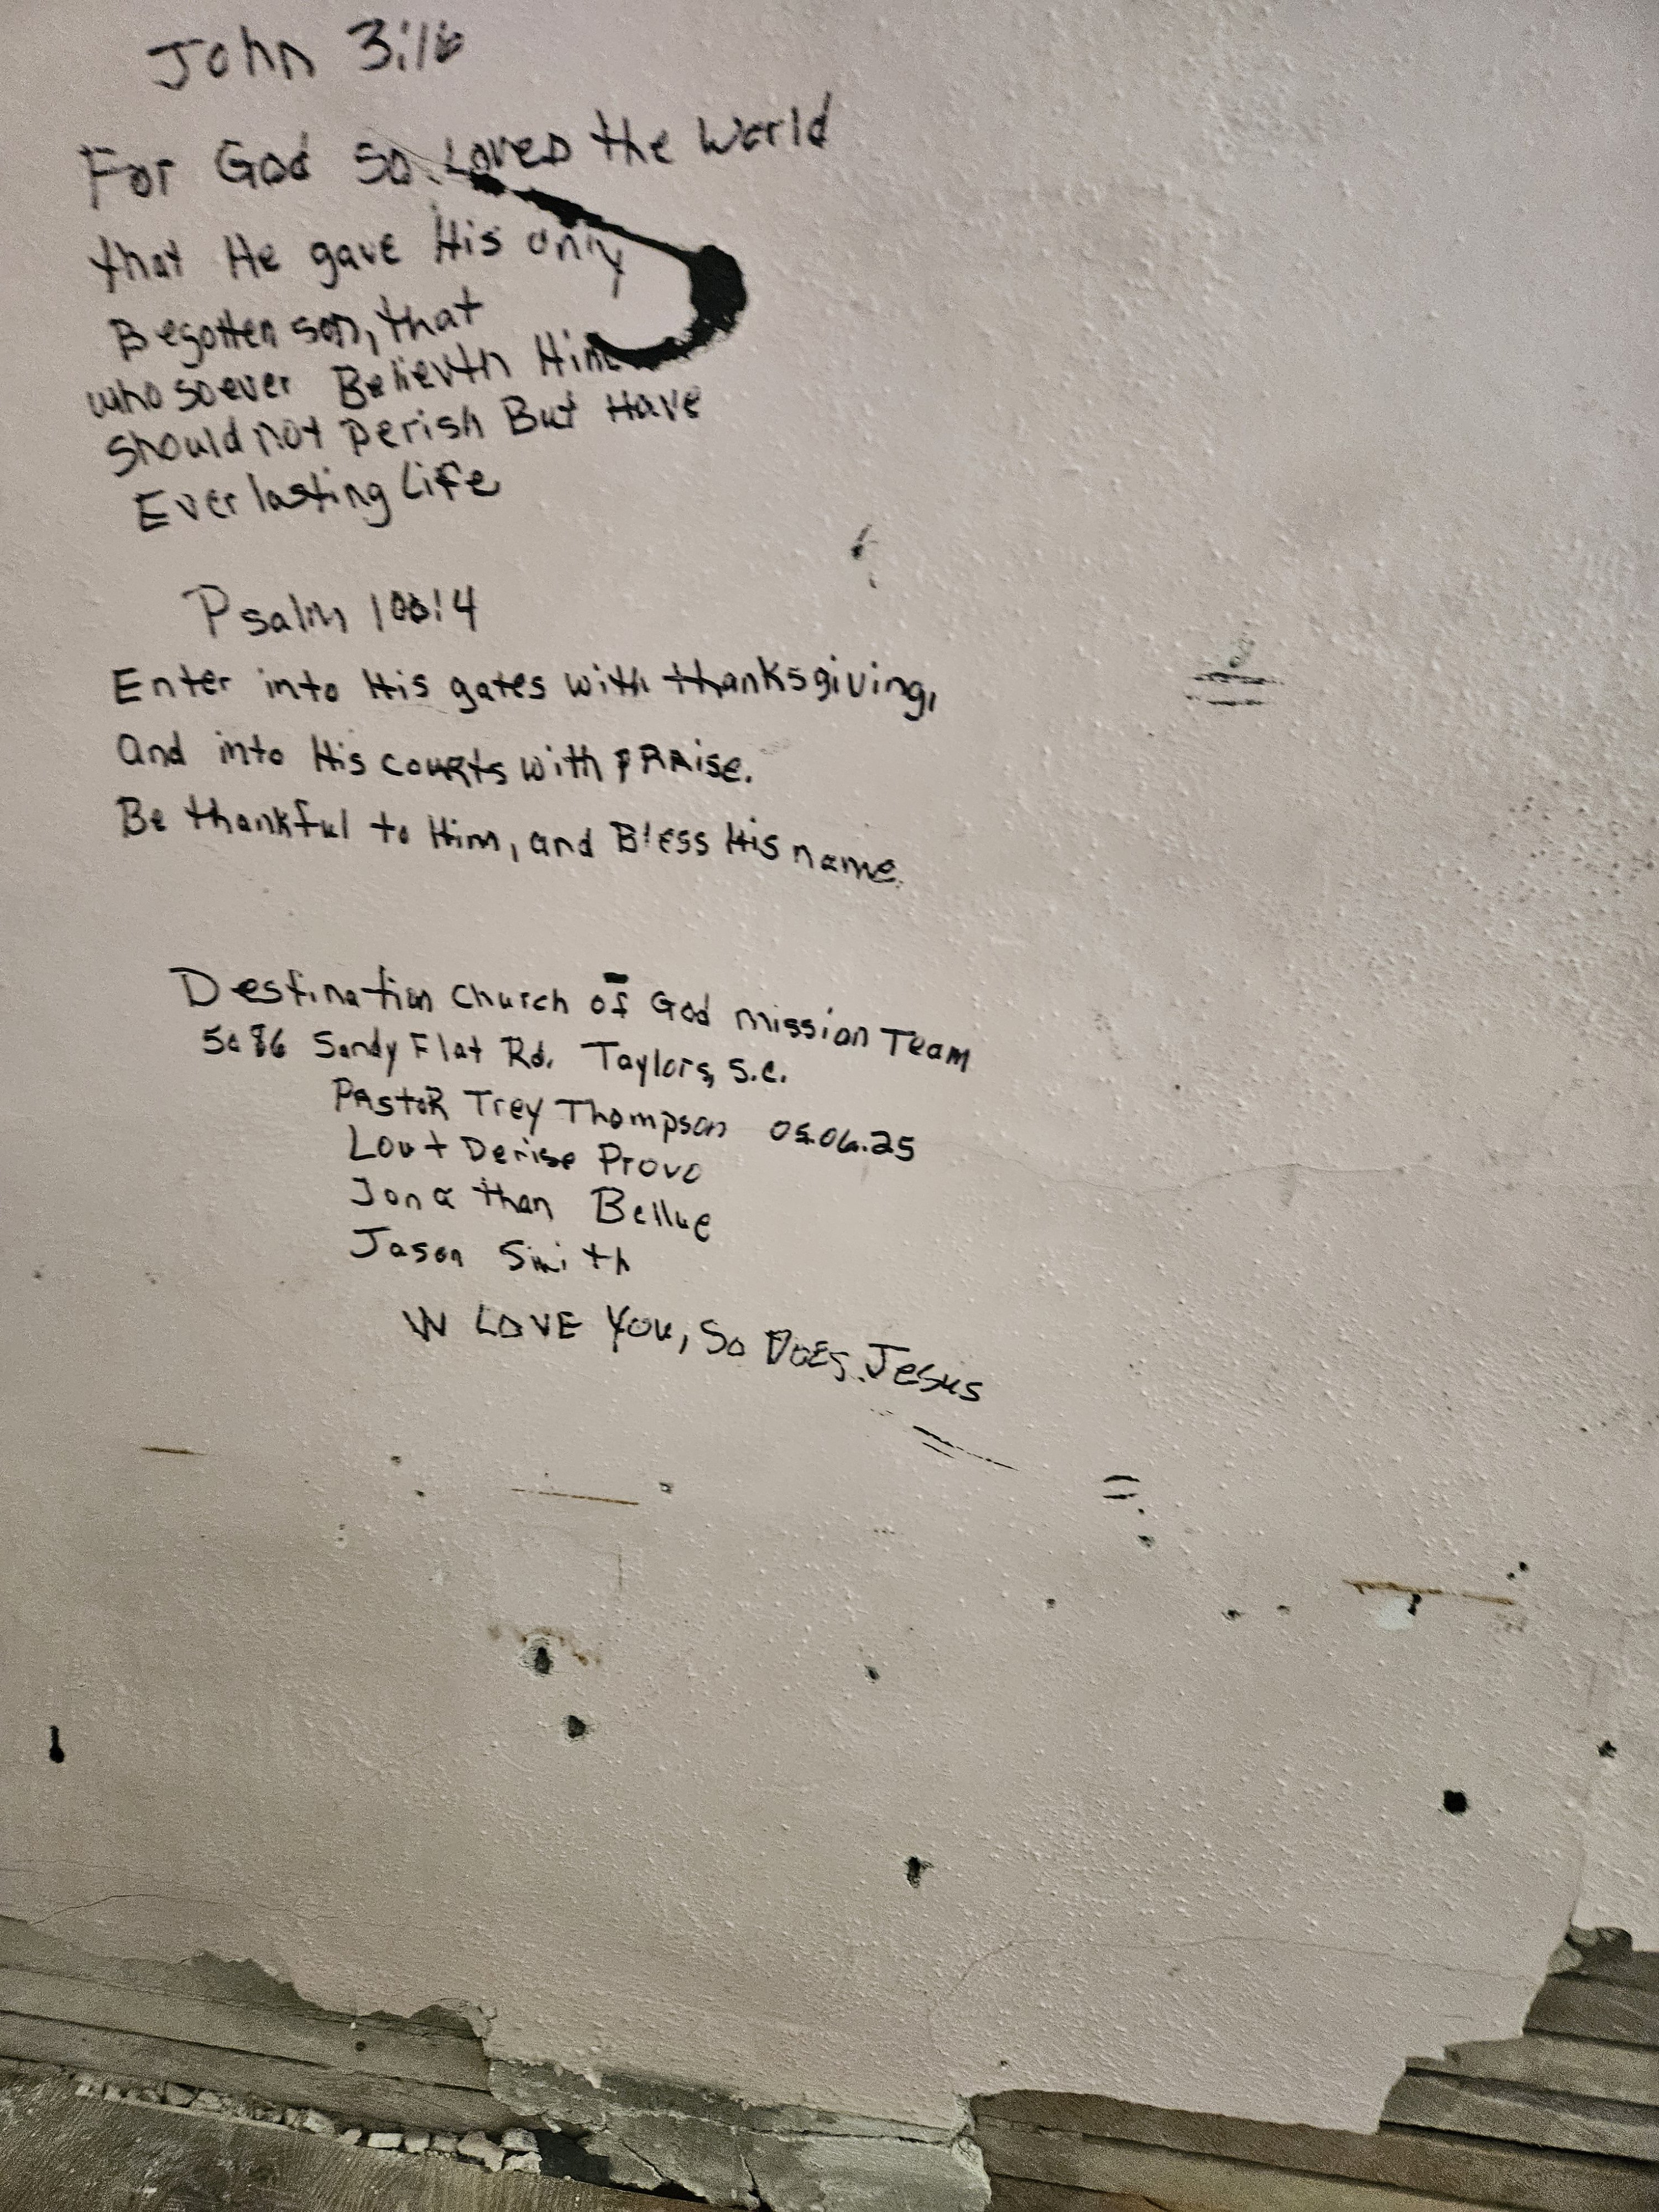 John 3:16
For God so Loved the World
that He gave His only
Begotten son, that
whosoever Believth Him
should not perish But Have
Everlasting Life
Psalm 100:4
Enter into His gates with thanksgiving,
And into His courts with PRAise.
Be thankful to Him, and Bless His name.
Destination Church of God mission Team
5086 Sandy Flat Rd. Taylors, S.C.
PAstoR Trey Thompson 05.06.25
Lou + Denise Provo
Jonathan Bellue
Jason Smith
W LOVE YOU, SO DOES JESUS